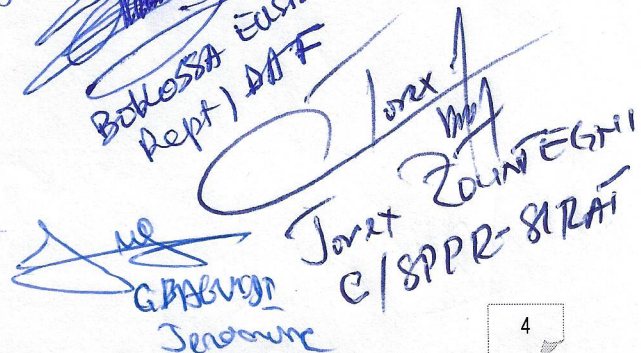 BOKOSSA
Rept/ DAF
Jorex
Jorex ZOUNTEGNI
C/SPPR-SIRAT
GBAGUIDI
4